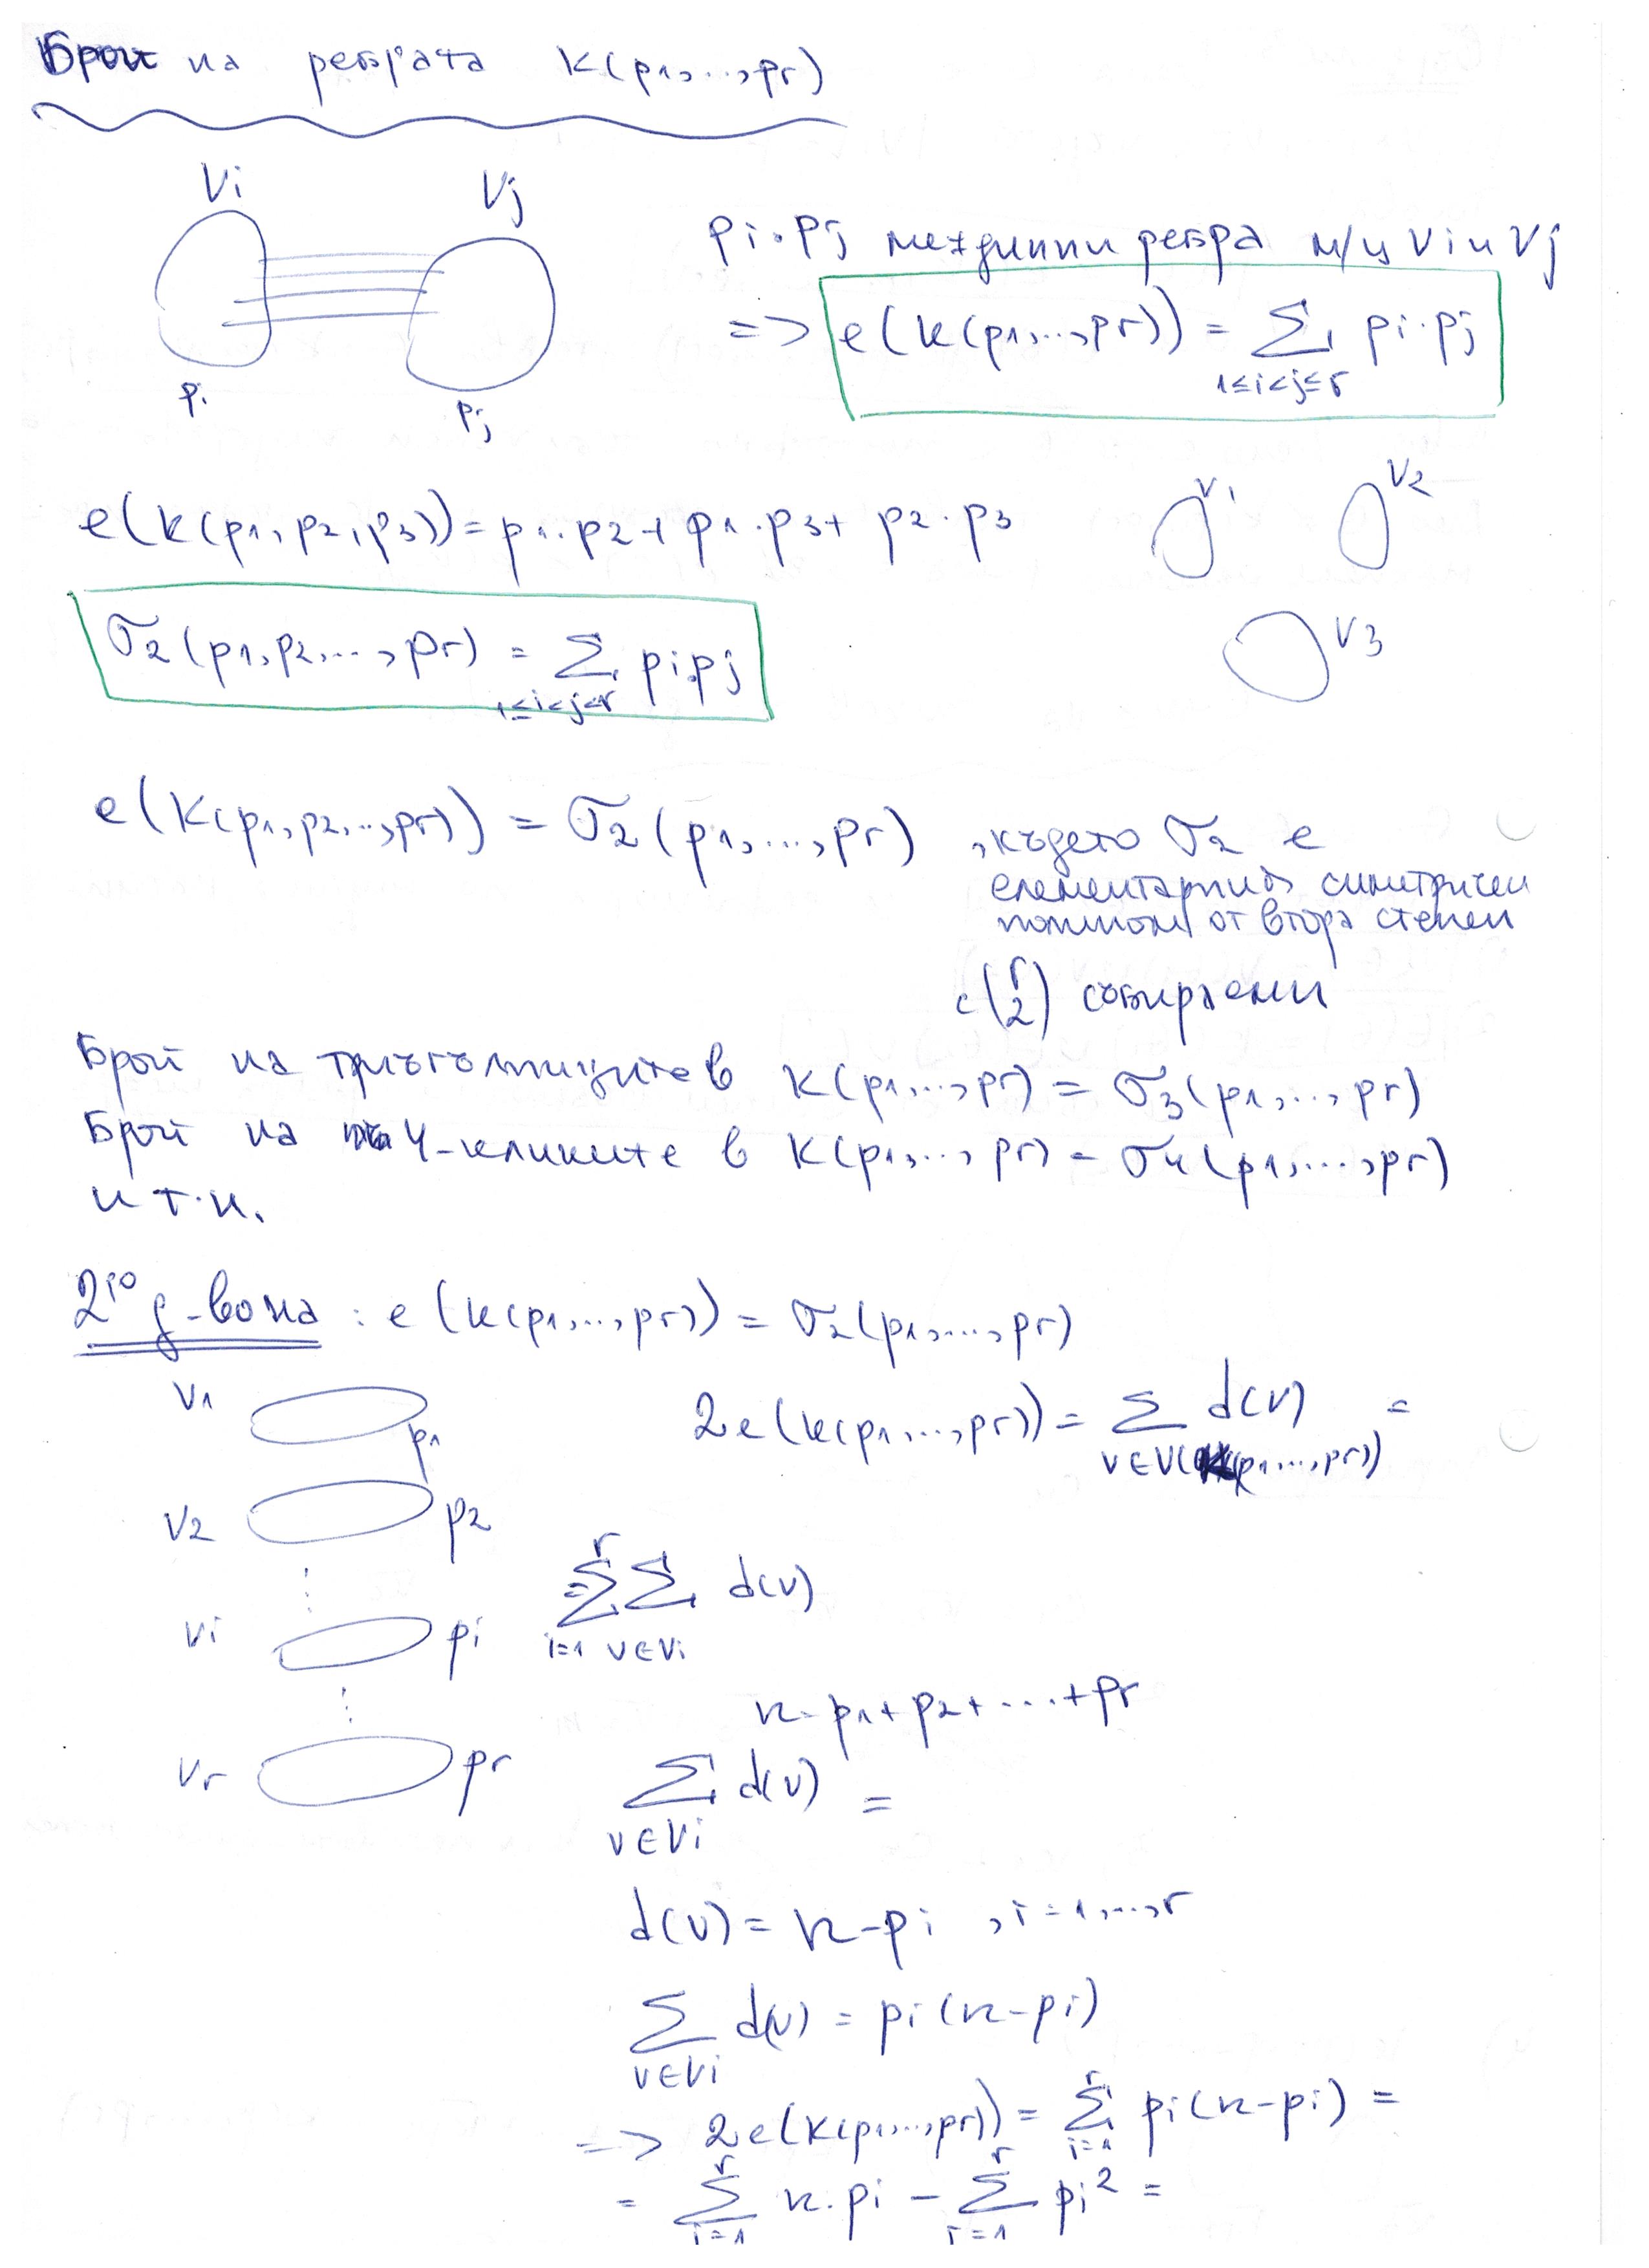 Брой на ребрата K(p1,...,pr)
Vi Vj
pi pj
pi.pj междинни ребра м/у Vi и Vj
=> e(K(p1,...,pr)) = Σ pi.pj
1≤i<j≤r
V1 V2
e(K(p1,p2,p3)) = p1.p2 + p1.p3 + p2.p3
V3
σ2(p1,p2,...,pr) = Σ pi.pj
1≤i<j≤r
e(K(p1,p2,...,pr)) = σ2(p1,...,pr) , където σ2 е
елементарният симетричен
полином от втора степен
с (r 2) събираеми
Брой на триъгълниците в K(p1,...,pr) = σ3(p1,...,pr)
Брой на 4-кликите в K(p1,...,pr) = σ4(p1,...,pr)
и т.н.
2ро д-во на : e(K(p1,...,pr)) = σ2(p1,...,pr)
V1 p1
2e(K(p1,...,pr)) = Σ d(v) =
v∈V(K(p1,...,pr))
V2 p2
= Σ Σ d(v)
r
i=1 v∈Vi
⋮
Vi pi
n = p1+p2+...+pr
⋮
Vr pr
Σ d(v) =
v∈Vi
d(v) = n-pi , i=1,...,r
Σ d(v) = pi(n-pi)
v∈Vi
=> 2e(K(p1,...,pr)) = Σ pi(n-pi) =
r
i=1
= Σ n.pi - Σ pi² =
r r
i=1 i=1